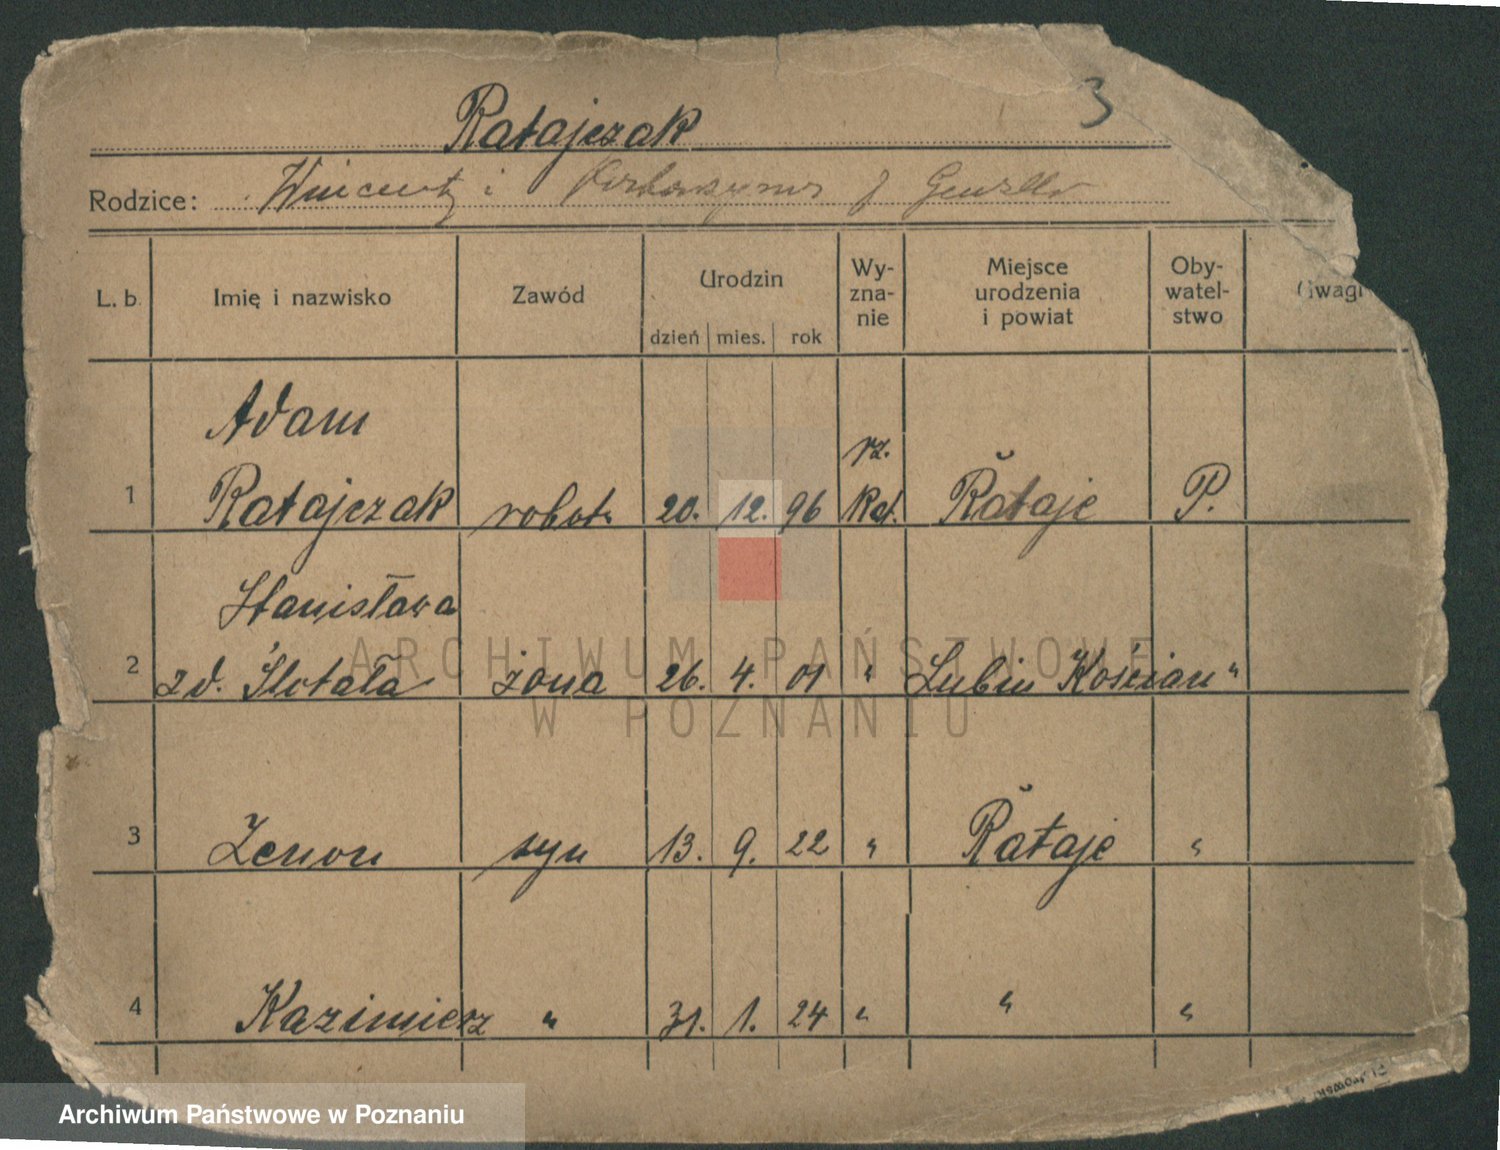 3
Ratajczak
Rodzice: Wincenty i
L. b. Imię i nazwisko Zawód Urodzin dzień mies. rok Wy-zna-nie Miejsce urodzenia i powiat Oby-watel-stwo Uwagi
Adam
rz.
1 Ratajczak robot. 20. 12. 96 Kat. Rataje P.
Stanisława
2 zd. Ślotała żona 26. 4. 01 " Lubiń Kościan "
3 Zenon syn 13. 9. 22 " Rataje "
4 Kazimierz " 31. 1. 24 " " "
ARCHIWUM PAŃSTWOWE
W POZNANIU
Archiwum Państwowe w Poznaniu